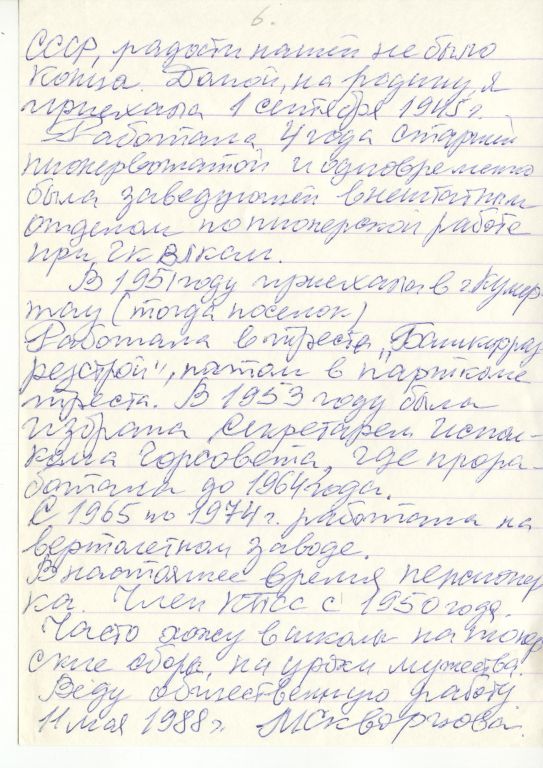 6.
СССР, радости нашей не было
конца. Домой, на родину, я
приехала 1 сентября 1945 г.
Работала 4 года старшей
пионервожатой и одновременно
была заведующей внештатным
отделом по пионерской работе
при ГК ВЛКСМ.
В 1951 году приехала в г. Кумер-
тау (тогда поселок)
Работала в тресте „Башкираз-
резстрой", потом в парткоме
треста. В 1953 году была
избрана секретарем Испол-
кома Горсовета, где прора-
ботала до 1964 года.
С 1965 по 1974 г. работала на
вертолетном заводе.
В настоящее время пенсионер-
ка. Член КПСС с 1950 года.
Часто хожу в школы на пионер-
ские сборы, на уроки мужества.
Веду общественную работу.
11 мая 1988 г. МСкворцова.